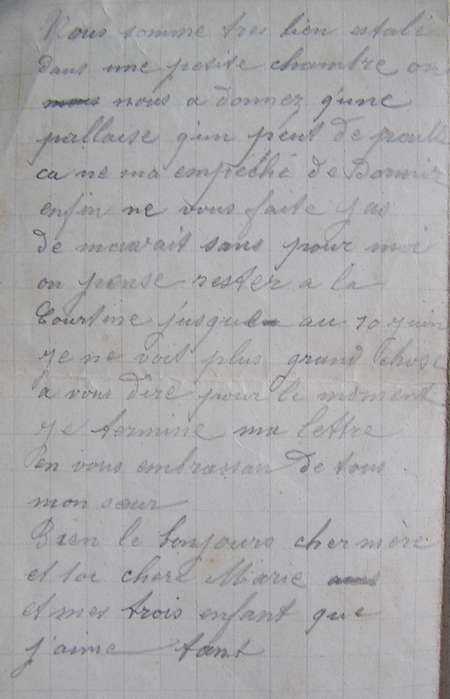 Nous somme tres bien etabli
dans une petite chambre on
nous a donnez q'une
paillaise q'un peut de paille
ca ne ma empéché de Dormir
enfin ne vous faite pas
de mauvait sans pour moi
on pense rester a la
Courtine jusque au 10 juin
je ne voit plus grand chose
a vous dire pour le moment
je termine ma lettre
en vous embrassan de tous
mon cœur
Bien le bonjours cher mère
et toi chere Marie
et mes trois enfant que
j'aime tant